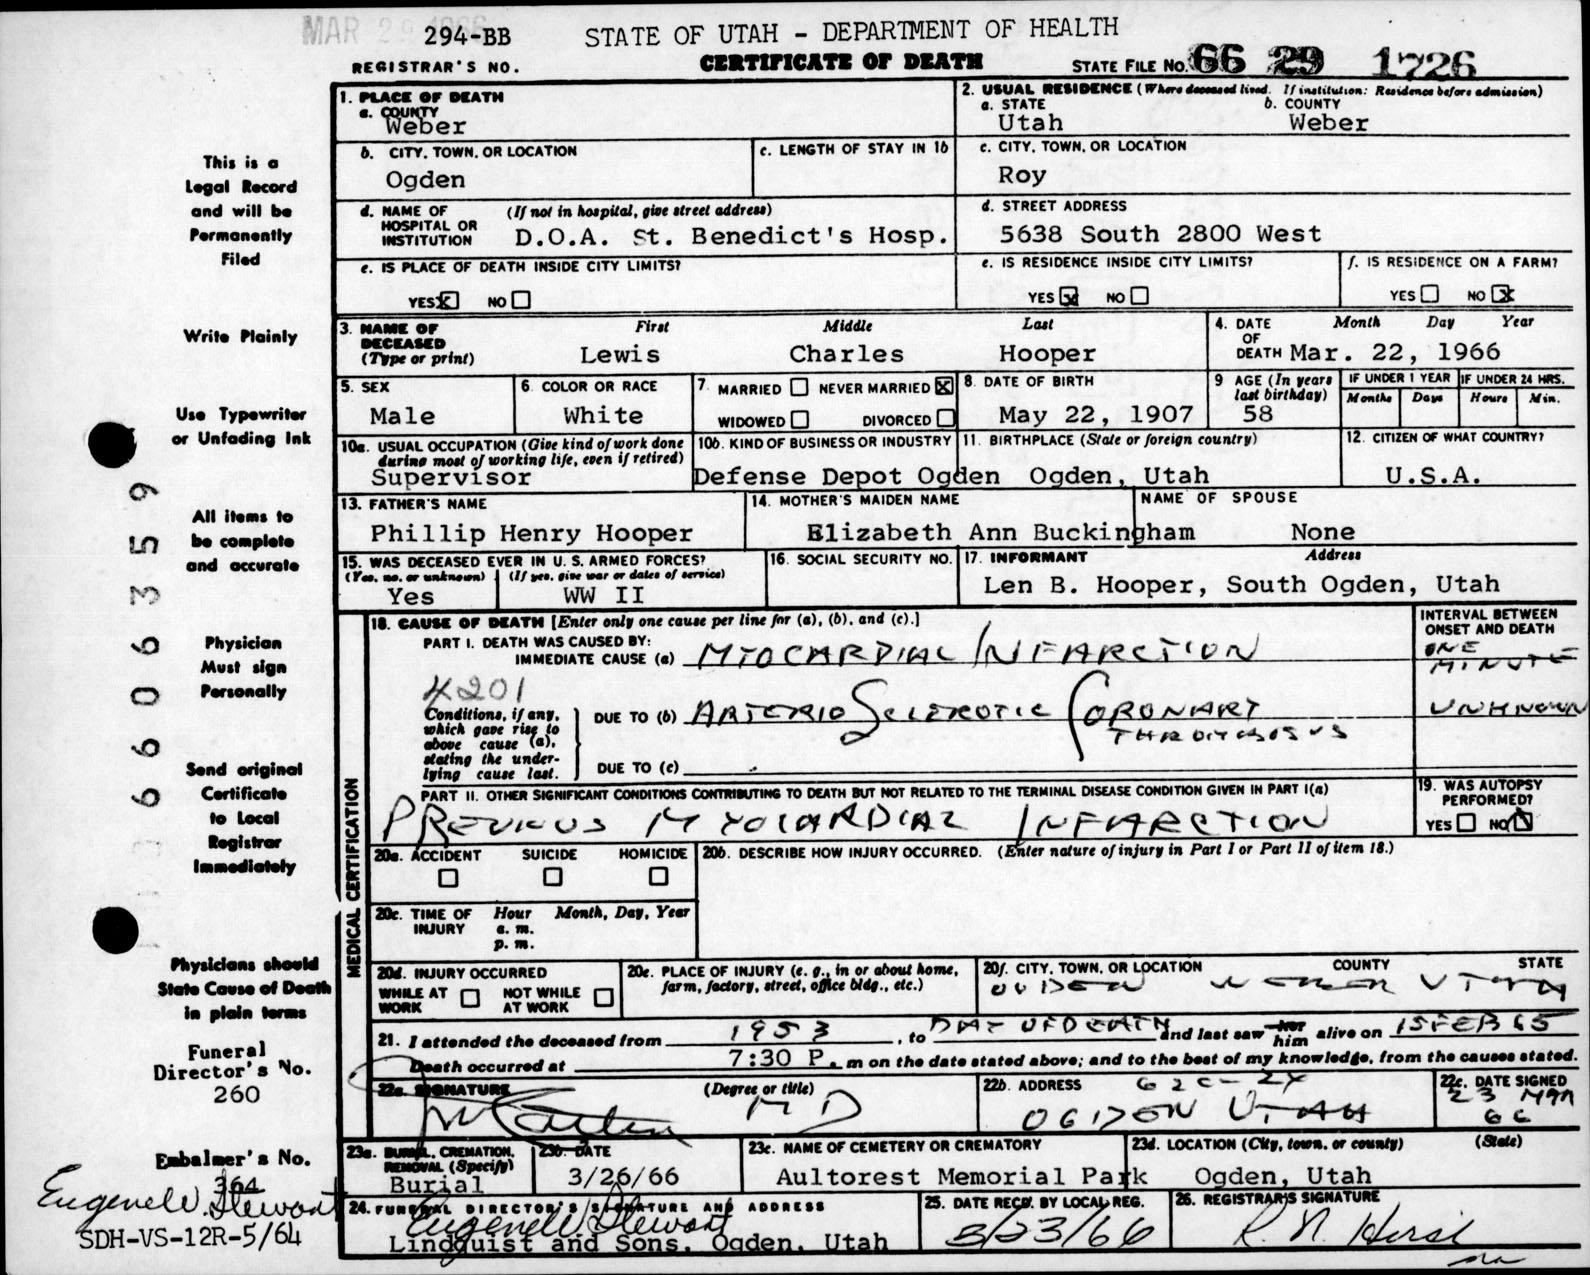 MAR 29 1966
294-BB
STATE OF UTAH - DEPARTMENT OF HEALTH
REGISTRAR'S NO.
CERTIFICATE OF DEATH
STATE FILE NO. 66 29 1726
This is a
Legal Record
and will be
Permanently
Filed
Write Plainly
Use Typewriter
or Unfading Ink
All items to
be complete
and accurate
Physician
Must sign
Personally
Send original
Certificate
to Local
Registrar
Immediately
Physicians should
State Cause of Death
in plain terms
Funeral
Director's No.
260
Embalmer's No.
364
Eugene W. Stewart
SDH-VS-12R-5/64
1. PLACE OF DEATH
a. COUNTY
Weber
2. USUAL RESIDENCE (Where deceased lived. If institution: Residence before admission)
a. STATE b. COUNTY
Utah Weber
b. CITY, TOWN, OR LOCATION
Ogden
c. LENGTH OF STAY IN 1b
c. CITY, TOWN, OR LOCATION
Roy
d. NAME OF HOSPITAL OR INSTITUTION (If not in hospital, give street address)
D.O.A. St. Benedict's Hosp.
d. STREET ADDRESS
5638 South 2800 West
e. IS PLACE OF DEATH INSIDE CITY LIMITS?
YES X NO
e. IS RESIDENCE INSIDE CITY LIMITS?
YES X NO
f. IS RESIDENCE ON A FARM?
YES NO X
3. NAME OF DECEASED (Type or print) First Middle Last
Lewis Charles Hooper
4. DATE OF DEATH Month Day Year
Mar. 22, 1966
5. SEX
Male
6. COLOR OR RACE
White
7. MARRIED NEVER MARRIED X
WIDOWED DIVORCED
8. DATE OF BIRTH
May 22, 1907
9 AGE (In years last birthday)
58
IF UNDER 1 YEAR IF UNDER 24 HRS.
Months Days Hours Min.
10a. USUAL OCCUPATION (Give kind of work done during most of working life, even if retired)
Supervisor
10b. KIND OF BUSINESS OR INDUSTRY
Defense Depot Ogden
11. BIRTHPLACE (State or foreign country)
Ogden, Utah
12. CITIZEN OF WHAT COUNTRY?
U.S.A.
13. FATHER'S NAME
Phillip Henry Hooper
14. MOTHER'S MAIDEN NAME
Elizabeth Ann Buckingham
NAME OF SPOUSE
None
15. WAS DECEASED EVER IN U. S. ARMED FORCES?
(Yes, no, or unknown) (If yes, give war or dates of service)
Yes WW II
16. SOCIAL SECURITY NO.
17. INFORMANT Address
Len B. Hooper, South Ogden, Utah
MEDICAL CERTIFICATION
18. CAUSE OF DEATH [Enter only one cause per line for (a), (b), and (c).]
PART I. DEATH WAS CAUSED BY:
IMMEDIATE CAUSE (a) MYOCARDIAL INFARCTION
INTERVAL BETWEEN ONSET AND DEATH
ONE MINUTE
4201
Conditions, if any, which gave rise to above cause (a), stating the underlying cause last.
DUE TO (b) ARTERIO SCLEROTIC CORONARY THROMBOSIS
UNKNOWN
DUE TO (c)
PART II. OTHER SIGNIFICANT CONDITIONS CONTRIBUTING TO DEATH BUT NOT RELATED TO THE TERMINAL DISEASE CONDITION GIVEN IN PART I(a)
PREVIOUS MYOCARDIAL INFARCTION
19. WAS AUTOPSY PERFORMED?
YES NO X
20a. ACCIDENT SUICIDE HOMICIDE
20b. DESCRIBE HOW INJURY OCCURRED. (Enter nature of injury in Part I or Part II of item 18.)
20c. TIME OF INJURY Hour Month, Day, Year
a. m.
p. m.
20d. INJURY OCCURRED
WHILE AT WORK NOT WHILE AT WORK
20e. PLACE OF INJURY (e. g., in or about home, farm, factory, street, office bldg., etc.)
20f. CITY, TOWN, OR LOCATION COUNTY STATE
OGDEN WEBER UTAH
21. I attended the deceased from 1953, to DAY OF DEATH and last saw her him alive on 15 FEB 65
Death occurred at 7:30 P. m on the date stated above; and to the best of my knowledge, from the causes stated.
22a. SIGNATURE (Degree or title)
M D
22b. ADDRESS
OGDEN UTAH
22c. DATE SIGNED
23 MAR 66
23a. BURIAL, CREMATION, REMOVAL (Specify)
Burial
23b. DATE
3/26/66
23c. NAME OF CEMETERY OR CREMATORY
Aultorest Memorial Park
23d. LOCATION (City, town, or county) (State)
Ogden, Utah
24. FUNERAL DIRECTOR'S SIGNATURE AND ADDRESS
Eugene W. Stewart
Lindquist and Sons, Ogden, Utah
25. DATE REC'D. BY LOCAL REG.
3/23/66
26. REGISTRAR'S SIGNATURE
6606359